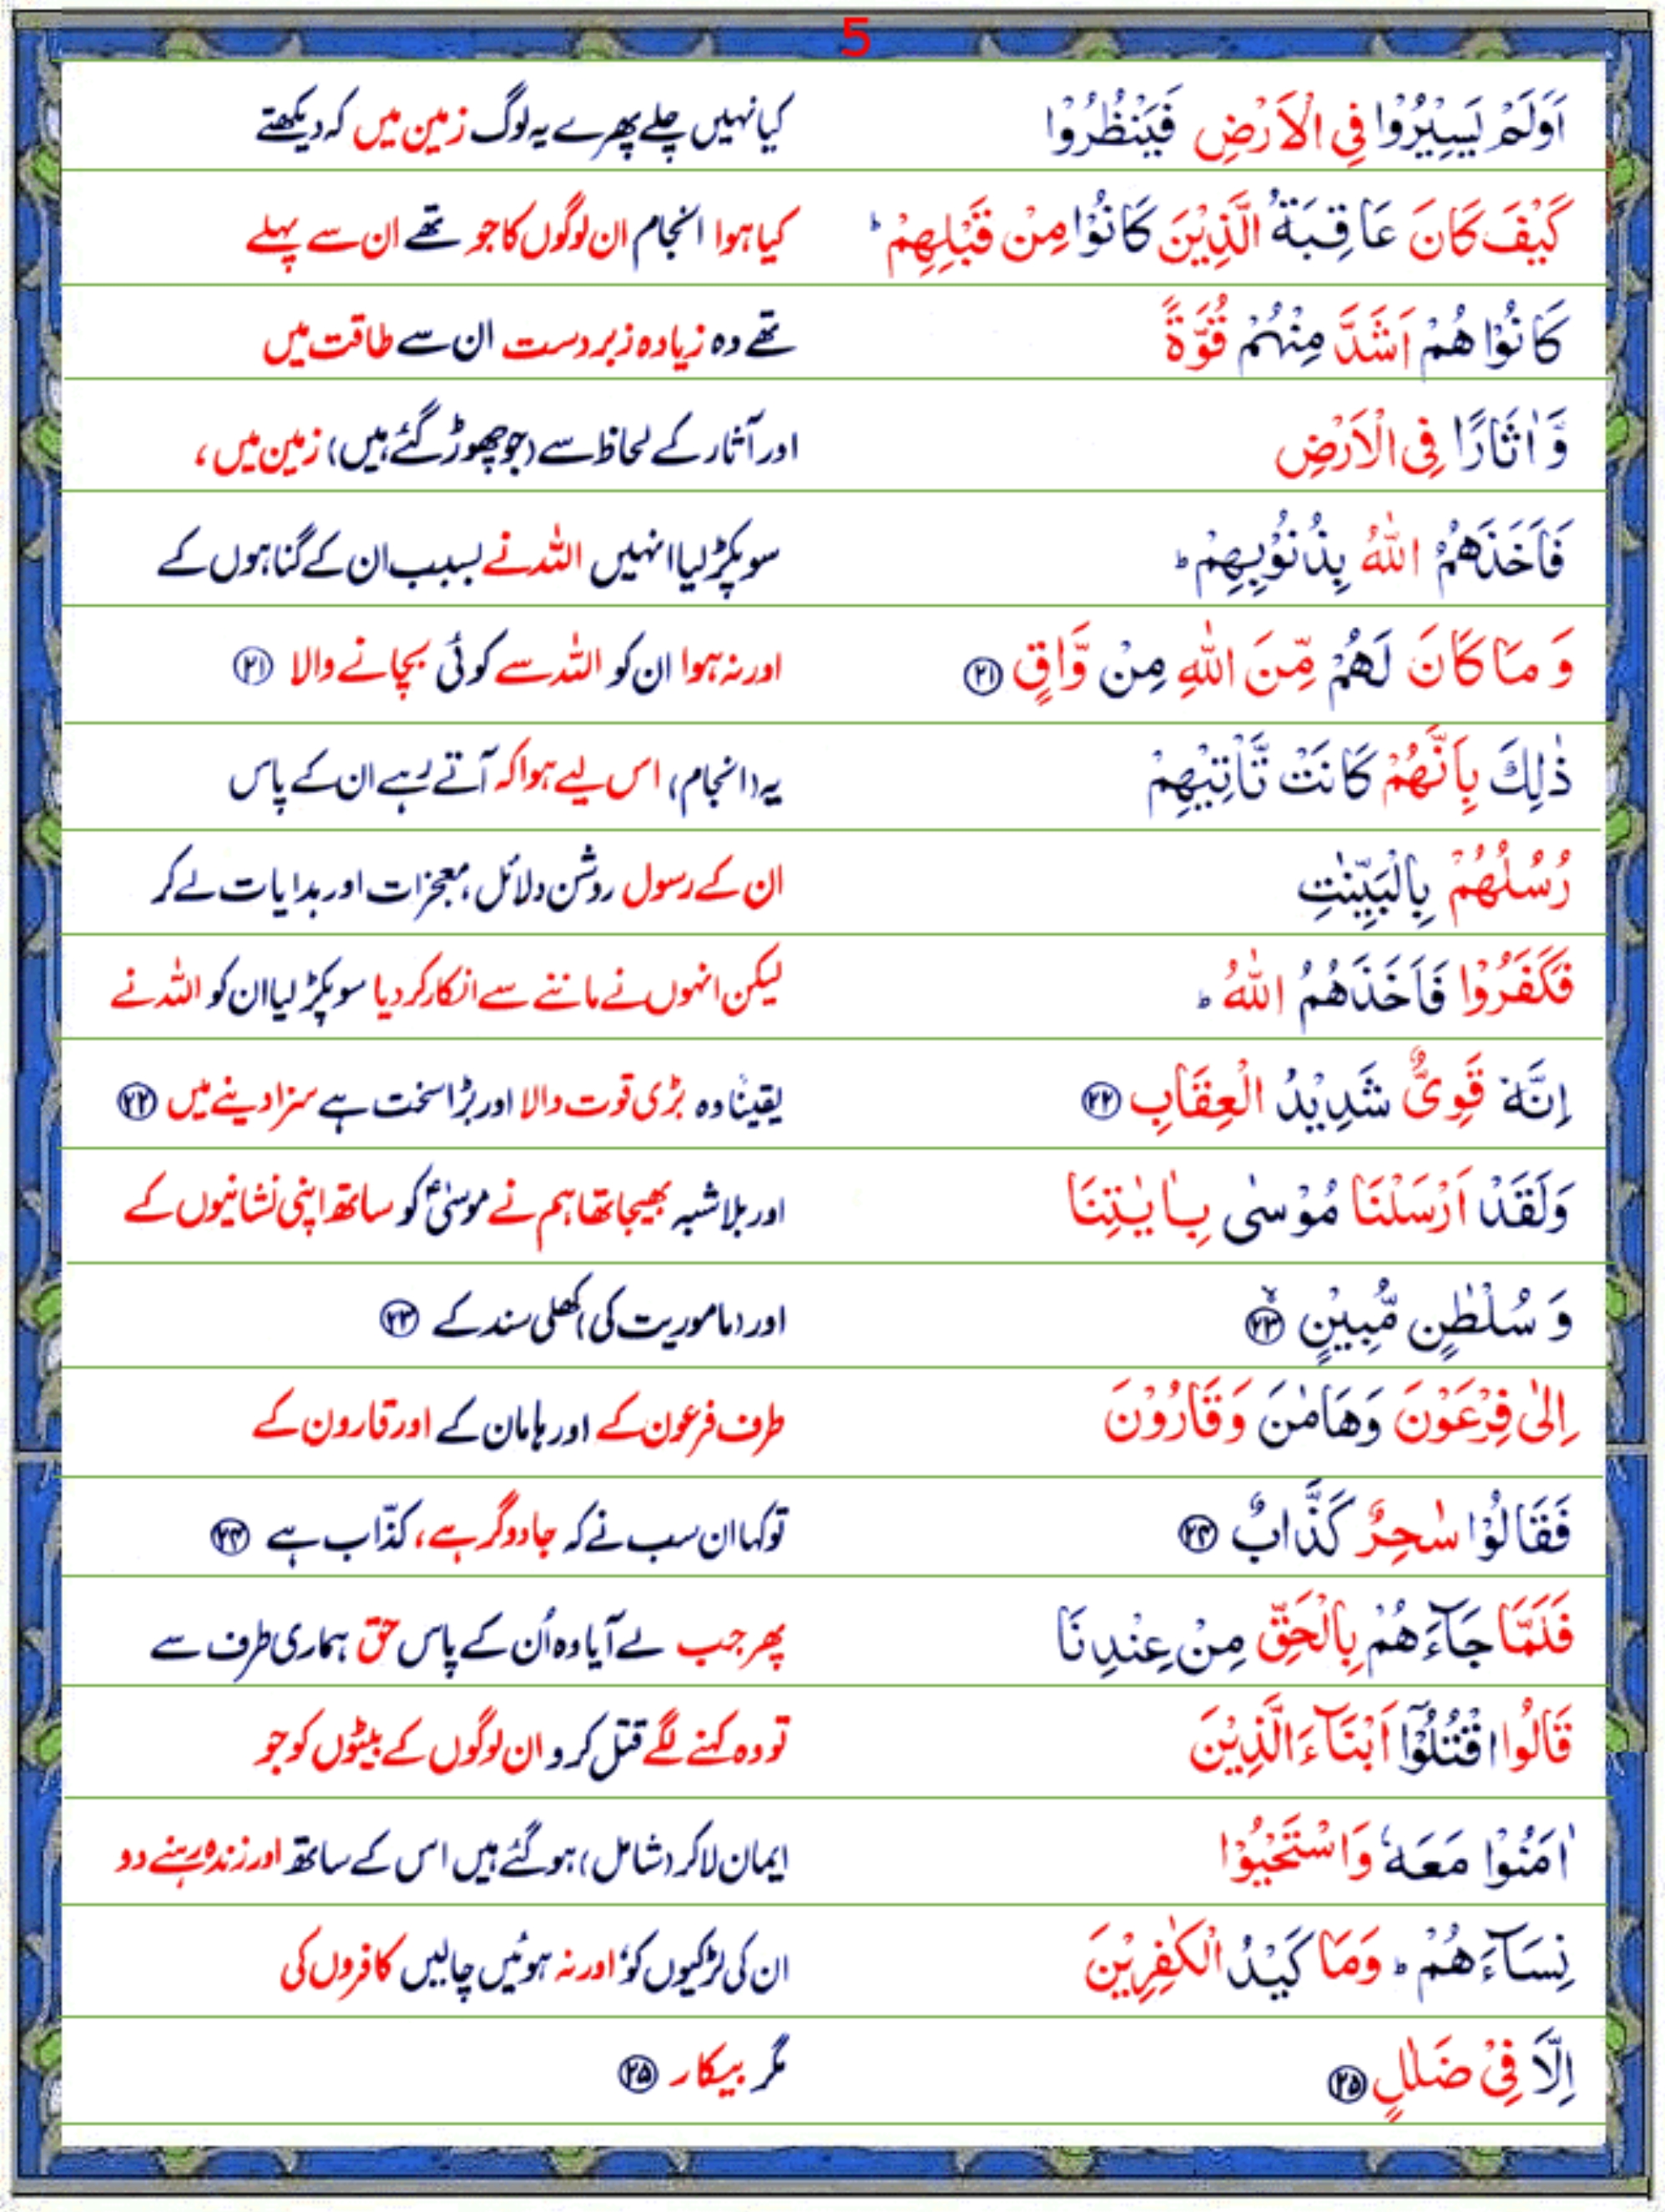 5
اَوَلَمْ يَسِيْرُوْا فِي الْاَرْضِ فَيَنْظُرُوْا
کیا نہیں چلے پھرے یہ لوگ زمین میں کہ دیکھتے
كَيْفَ كَانَ عَاقِبَةُ الَّذِيْنَ كَانُوْا مِنْ قَبْلِهِمْ ؕ
کیا ہوا انجام ان لوگوں کا جو تھے ان سے پہلے
كَانُوْا هُمْ اَشَدَّ مِنْهُمْ قُوَّةً
تھے وہ زیادہ زبردست ان سے طاقت میں
وَّ اٰثَارًا فِي الْاَرْضِ
اور آثار کے لحاظ سے (جو چھوڑ گئے ہیں) زمین میں،
فَاَخَذَهُمُ اللّٰهُ بِذُنُوْبِهِمْ ؕ
سو پکڑ لیا انہیں اللہ نے بسبب ان کے گناہوں کے
وَ مَا كَانَ لَهُمْ مِّنَ اللّٰهِ مِنْ وَّاقٍ ﴿۲۱﴾
اور نہ ہوا ان کو اللہ سے کوئی بچانے والا ﴿۲۱﴾
ذٰلِكَ بِاَنَّهُمْ كَانَتْ تَّاْتِيْهِمْ
یہ (انجام) اس لیے ہوا کہ آتے رہے ان کے پاس
رُسُلُهُمْ بِالْبَيِّنٰتِ
ان کے رسول روشن دلائل، معجزات اور ہدایات لے کر
فَكَفَرُوْا فَاَخَذَهُمُ اللّٰهُ ؕ
لیکن انہوں نے ماننے سے انکار کر دیا سو پکڑ لیا ان کو اللہ نے
اِنَّهٗ قَوِيٌّ شَدِيْدُ الْعِقَابِ ﴿۲۲﴾
یقیناً وہ بڑی قوت والا اور بڑا سخت ہے سزا دینے میں ﴿۲۲﴾
وَلَقَدْ اَرْسَلْنَا مُوْسٰى بِاٰيٰتِنَا
اور بلا شبہ بھیجا تھا ہم نے موسیٰؑ کو ساتھ اپنی نشانیوں کے
وَ سُلْطٰنٍ مُّبِيْنٍ ﴿۲۳﴾ۙ
اور (ماموریت کی) کھلی سند کے ﴿۲۳﴾
اِلٰى فِرْعَوْنَ وَهَامٰنَ وَقَارُوْنَ
طرف فرعون کے اور ہامان کے اور قارون کے
فَقَالُوْا سٰحِرٌ كَذَّابٌ ﴿۲۴﴾
تو کہا ان سب نے کہ جادوگر ہے، کذّاب ہے ﴿۲۴﴾
فَلَمَّا جَآءَهُمْ بِالْحَقِّ مِنْ عِنْدِنَا
پھر جب لے آیا وہ اُن کے پاس حق ہماری طرف سے
قَالُوا اقْتُلُوْٓا اَبْنَآءَ الَّذِيْنَ
تو وہ کہنے لگے قتل کرو ان لوگوں کے بیٹوں کو جو
اٰمَنُوْا مَعَهٗ وَاسْتَحْيُوْا
ایمان لا کر (شامل) ہو گئے ہیں اس کے ساتھ اور زندہ رہنے دو
نِسَآءَهُمْ ؕ وَمَا كَيْدُ الْكٰفِرِيْنَ
ان کی لڑکیوں کو، اور نہ ہوئیں چالیں کافروں کی
اِلَّا فِيْ ضَلٰلٍ ﴿۲۵﴾
مگر بیکار ﴿۲۵﴾